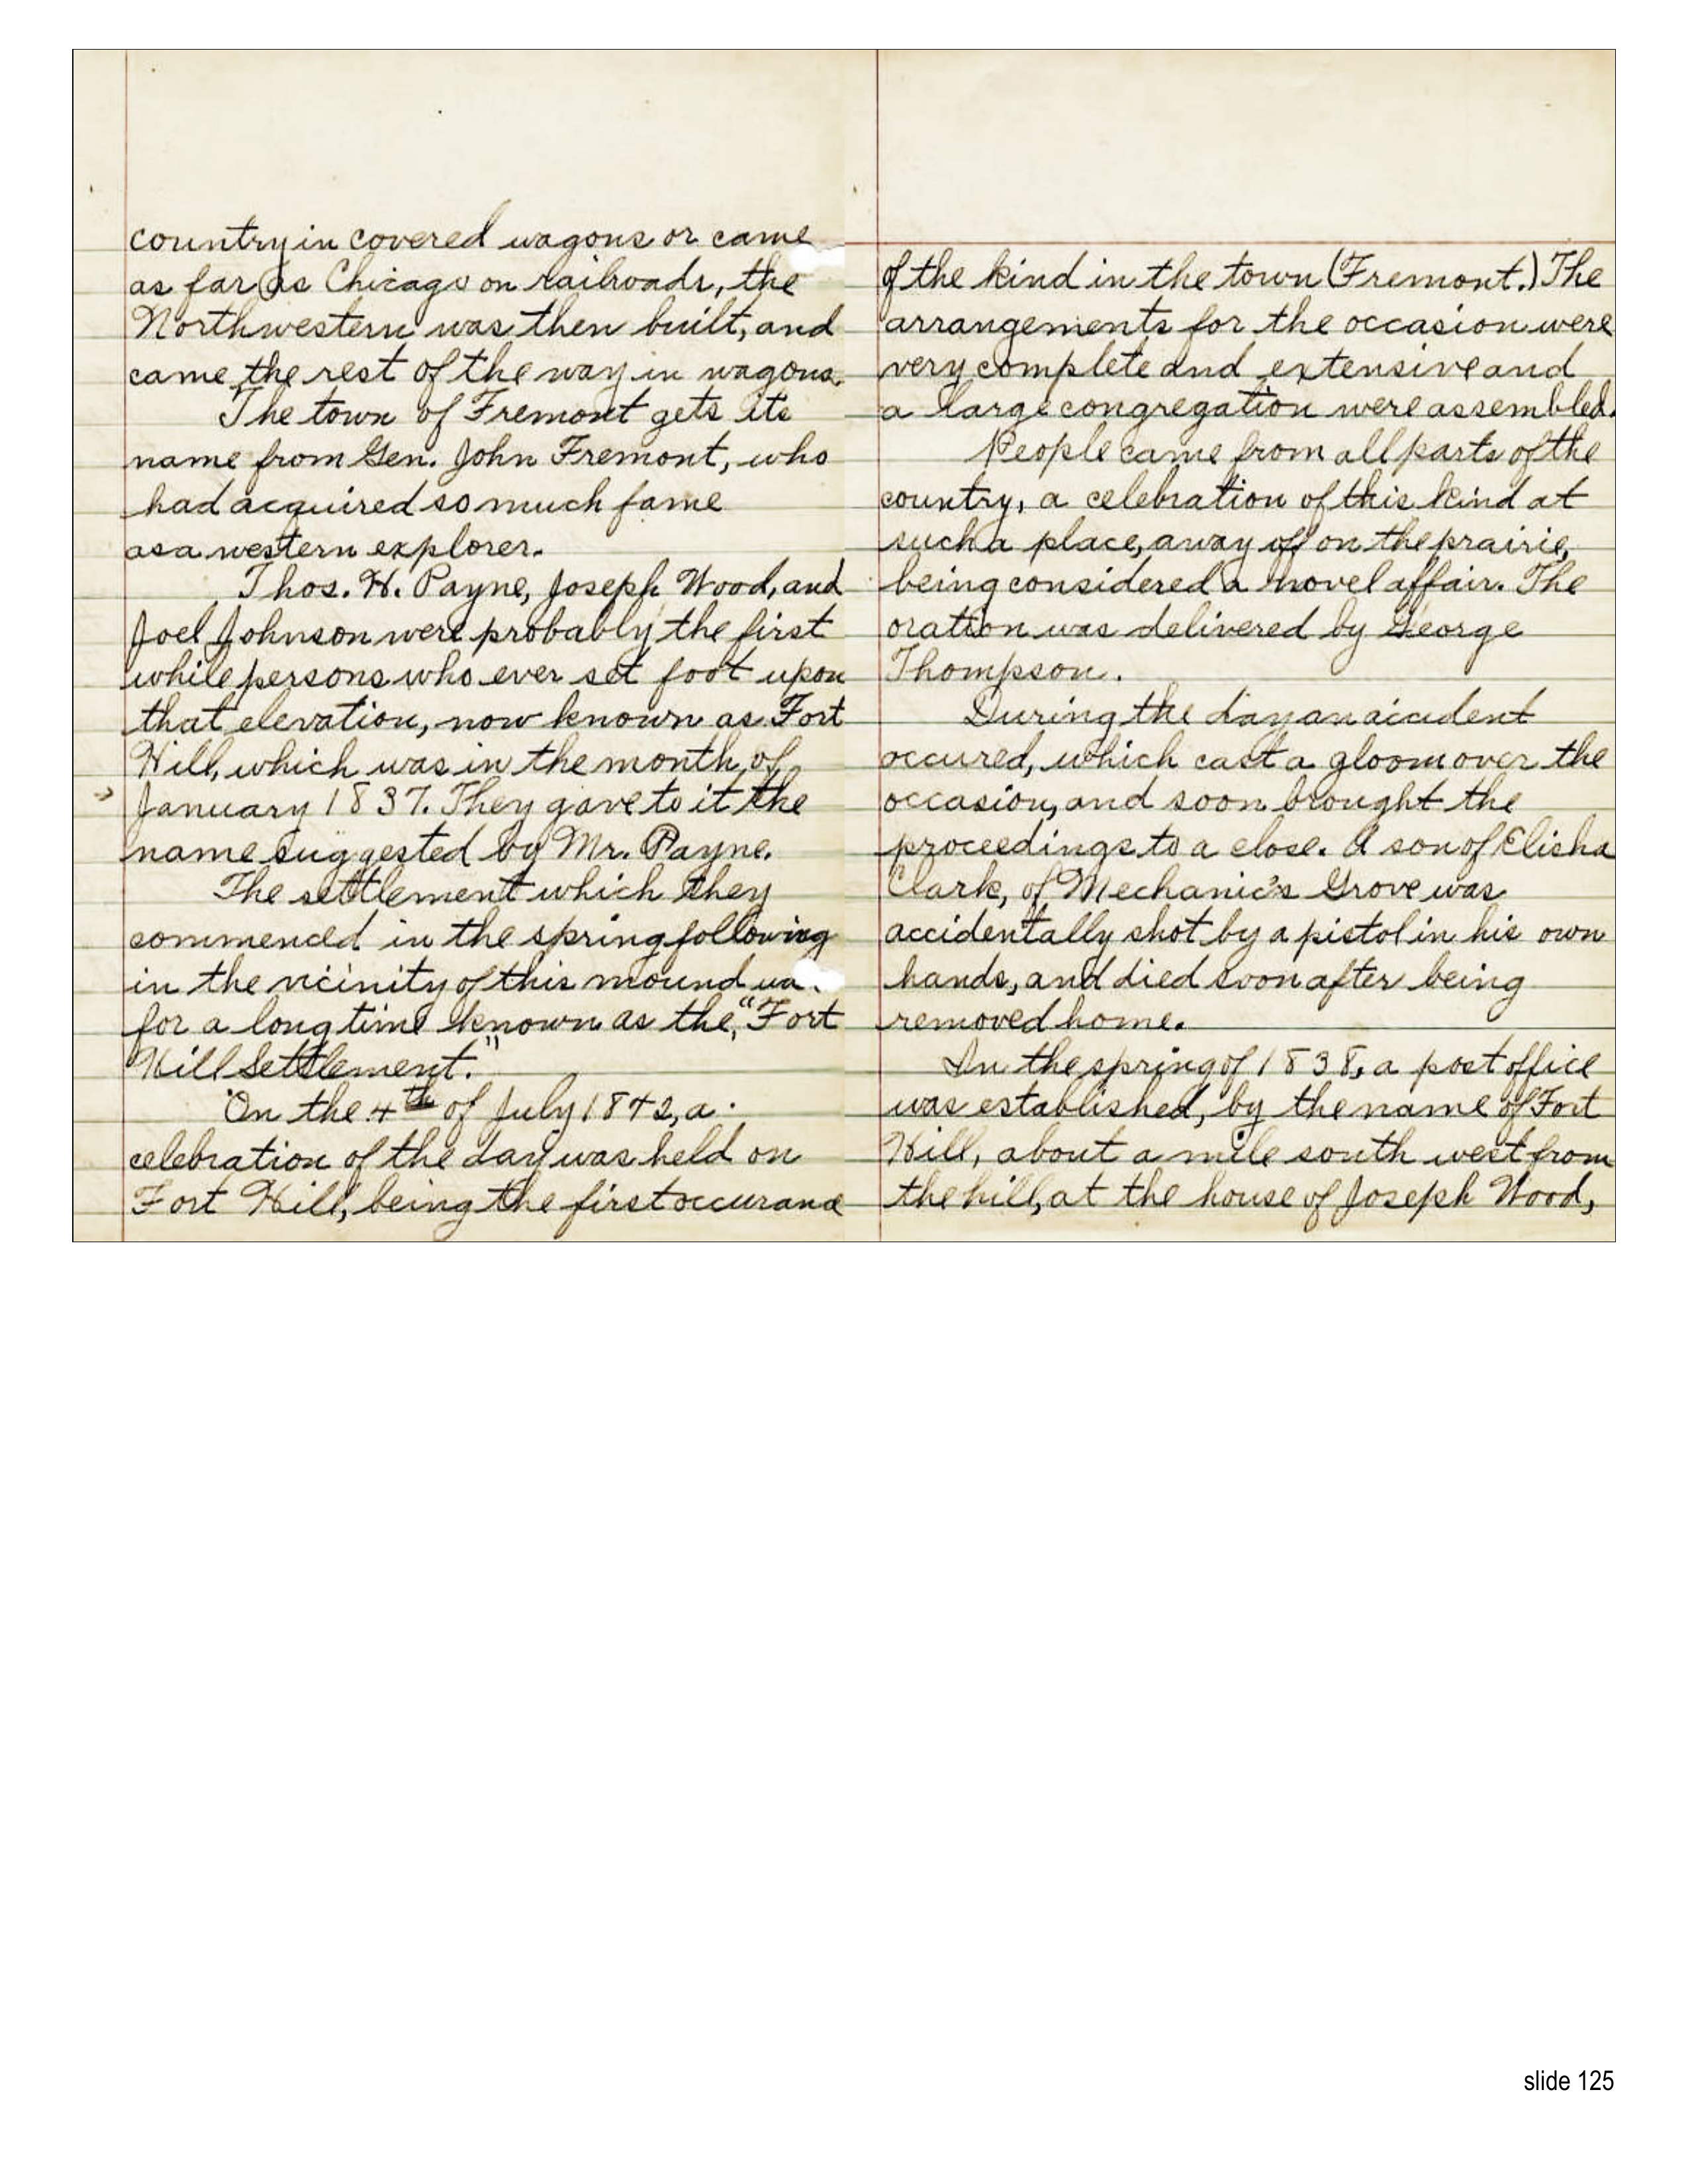 country in covered wagons or came
as far as Chicago on railroads, the
Northwestern was then built, and
came the rest of the way in wagons.
The town of Fremont gets its
name from Gen. John Fremont, who
had acquired so much fame
as a western explorer.
Thos. H. Payne, Joseph Wood, and
Joel Johnson were probably the first
while persons who ever set foot upon
that elevation, now known as Fort
Hill, which was in the month of
January 1837. They gave to it the
name suggested by Mr. Payne.
The settlement which they
commenced in the spring following
in the vicinity of this mound wa
for a long time known as the, "Fort
Hill Settlement."
On the 4th of July 1842, a
celebration of the day was held on
Fort Hill, being the first occurance
of the kind in the town (Fremont.) The
arrangements for the occasion were
very complete and extensive and
a large congregation were assembled.
People came from all parts of the
country, a celebration of this kind at
such a place, away off on the prairie,
being considered a novel affair. The
oration was delivered by George
Thompson.
During the day an aicident
occured, which cast a gloom over the
occasion, and soon brought the
proceedings to a close. A son of Elisha
Clark, of Mechanic's Grove was
accidentally shot by a pistol in his own
hands, and died soon after being
removed home.
In the spring of 1838, a post office
was established, by the name of Fort
Hill, about a mile south west from
the hill, at the house of Joseph Wood,
slide 125